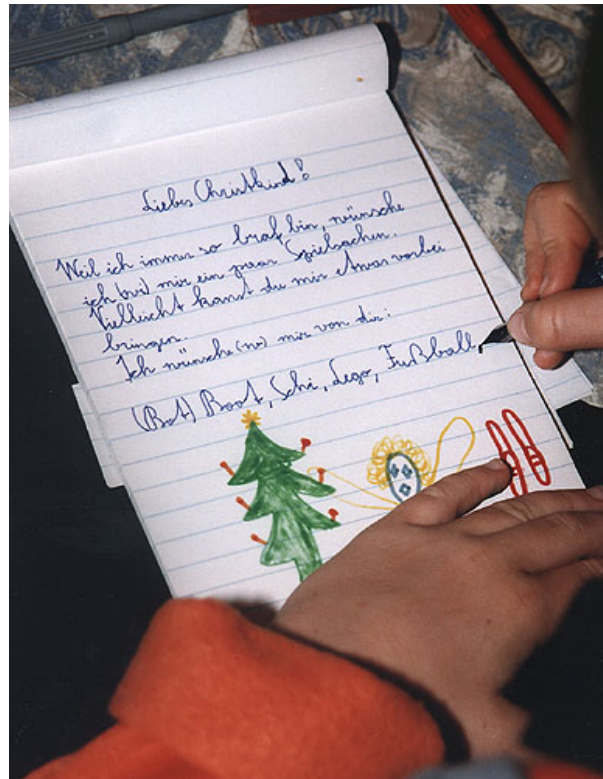 Liebes Christkind!
Weil ich immer so braf bin, wünsche
ich (wi) mir ein paar Spielsachen.
Vielleicht kanst du mir etwas vorbei
bringen.
Ich wünsche (wi) mir von dir:
(Bot) Boot, Schi, Lego, Fußball,